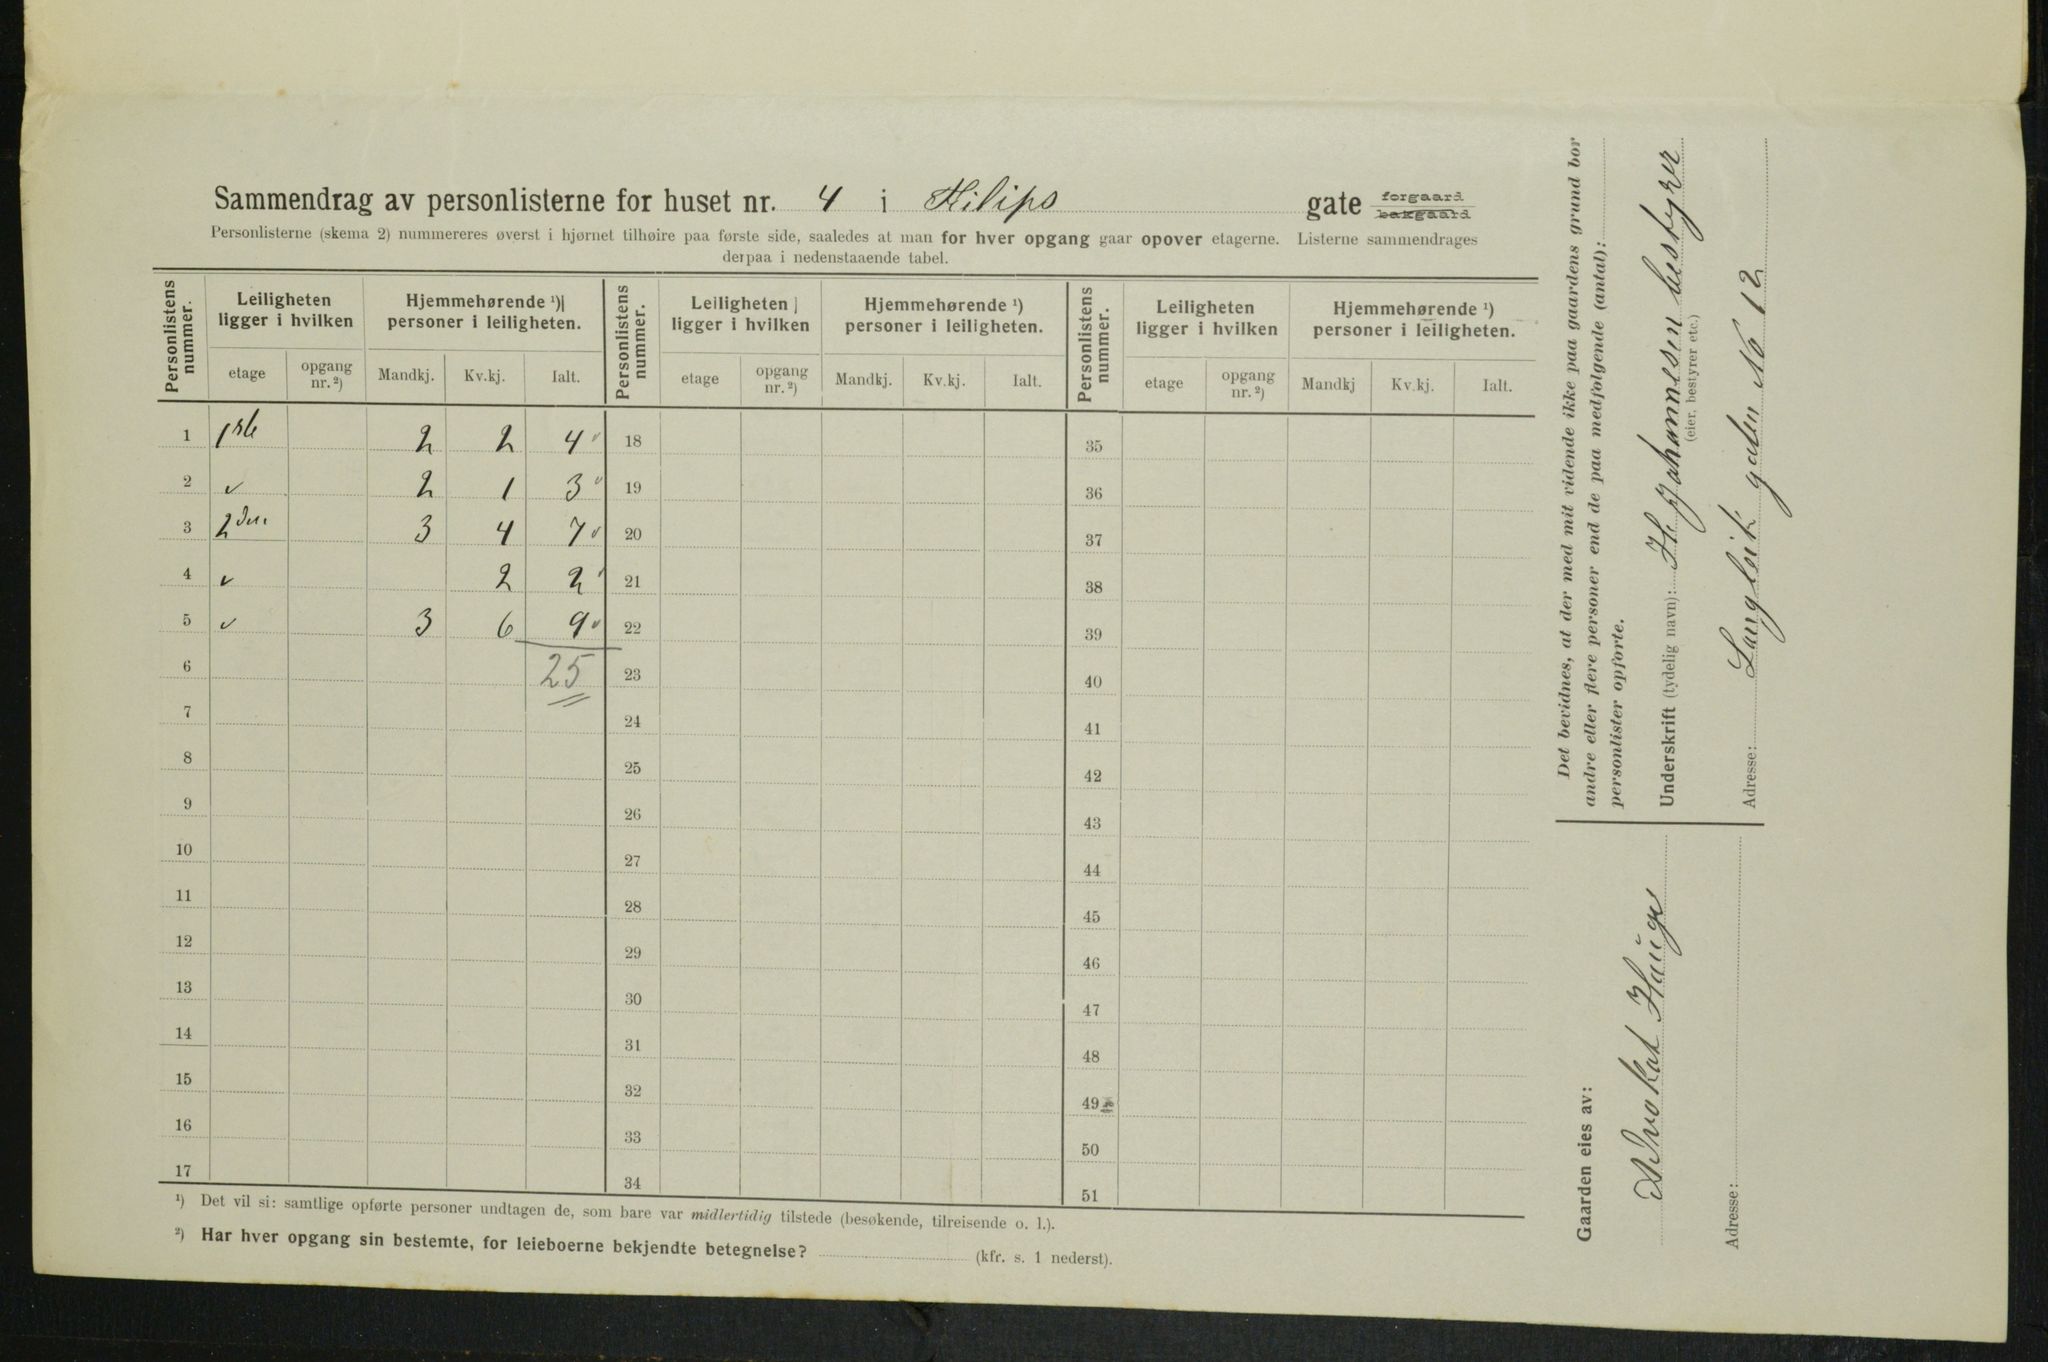 Sammendrag av personlisterne for huset nr. 4 i Filips gate forgaard bakgaard
Personlisterne (skema 2) nummereres øverst i hjørnet tilhøire paa første side, saaledes at man for hver opgang gaar opover etagerne. Listerne sammendrages
derpaa i nedenstaaende tabel.
Personlistens nummer. Leiligheten ligger i hvilken Hjemmehørende ¹) personer i leiligheten. Personlistens nummer. Leiligheten ligger i hvilken Hjemmehørende ¹) personer i leiligheten. Personlistens nummer. Leiligheten ligger i hvilken Hjemmehørende ¹) personer i leiligheten.
etage opgang nr. ²) Mandkj. Kv.kj. Ialt. etage opgang nr. ²) Mandkj. Kv.kj. Ialt. etage opgang nr. ²) Mandkj Kv.kj. Ialt.
1 1ste 2 2 4 18 35
2 v 2 1 3 19 36
3 2den 3 4 7 20 37
4 v 2 2 21 38
5 v 3 6 9 22 39
6 25 23 40
7 24 41
8 25 42
9 26 43
10 27 44
11 28 45
12 29 46
13 30 47
14 31 48
15 32 49
16 33 50
17 34 51
¹) Det vil si: samtlige opførte personer undtagen de, som bare var midlertidig tilstede (besøkende, tilreisende o. l.).
²) Har hver opgang sin bestemte, for leieboerne bekjendte betegnelse? (kfr. s. 1 nederst).
Det bevidnes, at der med mit vidende ikke paa gaardens grund bor
andre eller flere personer end de paa medfølgende (antal):
personlister opførte.
Underskrift (tydelig navn): H. Johannesen bestyrer
(eier, bestyrer etc.)
Adresse: Langleik gaden No 12
Gaarden eies av:
Advokat Hauge
Adresse: